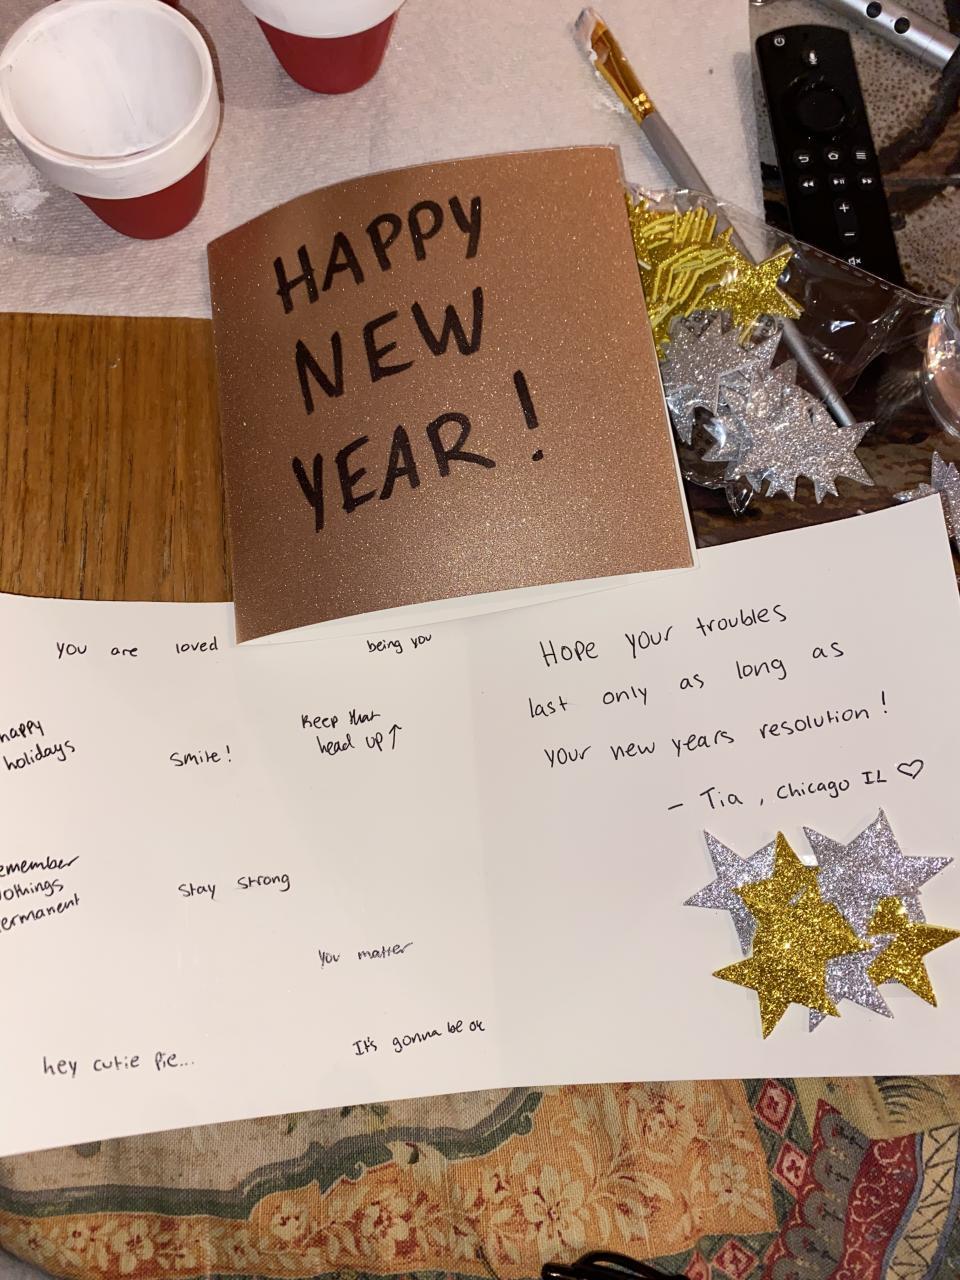 HAPPY
NEW
YEAR!
you are loved
being you
happy
holidays
Smile!
Keep that
head up↑
Stay strong
you matter
hey cutie pie...
It's gonna be ok
Hope your troubles
last only as long as
your new years resolution!
- Tia, Chicago IL ♡